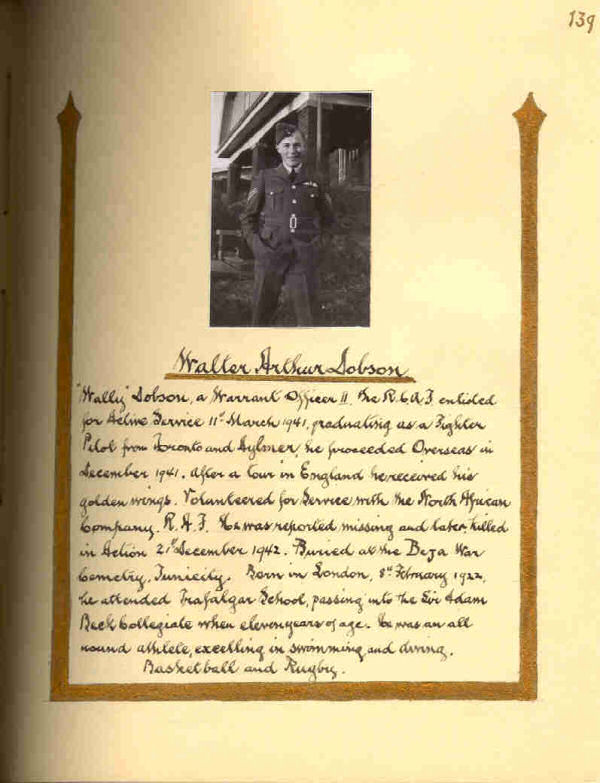 139
Walter Arthur Dobson
"Wally" Dobson, a Warrant Officer II. The R.C.A.F. enlisted
for Active Service 11th March 1941, graduating as a Fighter
Pilot from Toronto and Aylmer, he proceeded Overseas in
December 1941. After a tour in England he received his
golden wings. Volunteered for Service with the North African
Company. R.A.F. He was reported missing and later, killed
in Action 21st December 1942. Buried at the Beja War
Cemetry, Tunicity. Born in London, 8th February 1922,
he attended Trafalgar School, passing into the Sir Adam
Beck Collegiate when eleven years of age. He was an all
round athlete, excelling in swimming and diving.
Basketball and Rugby.